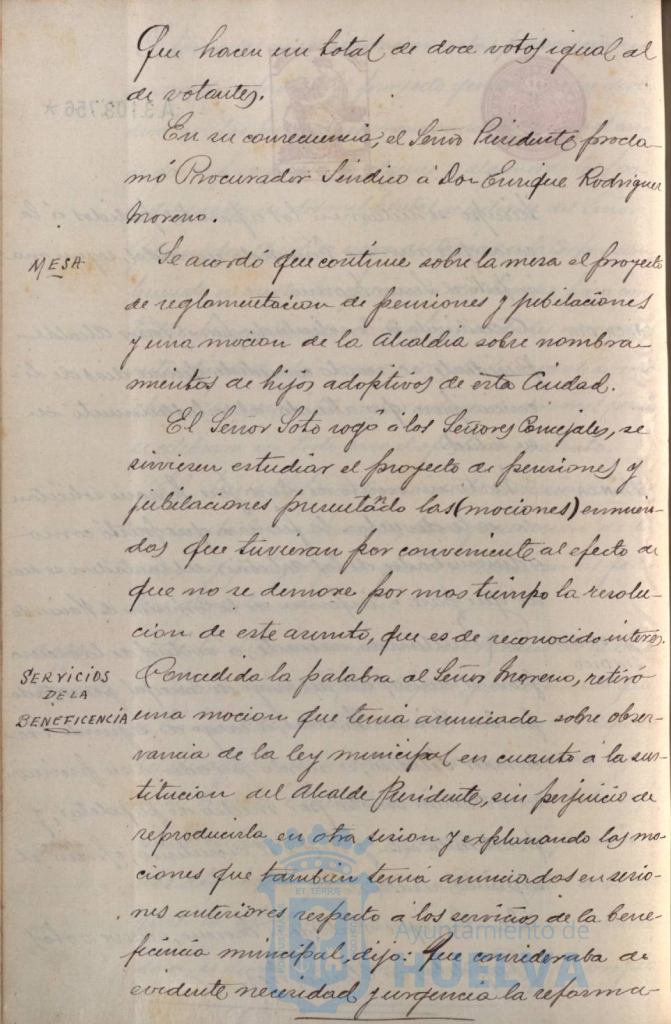 Que hacen un total de doce votos igual al
de votantes.
En su consecuencia, el Señor Presidente procla-
mó Procurador Síndico á Don Enrique Rodriguez
Moreno.
MESA
Se acordó que continue sobre la mesa el proyecto
de reglamentacion de pensiones y jubilaciones
y una mocion de la Alcaldia sobre nombra-
mientos de hijos adoptivos de esta Ciudad.
El Señor Soto rogó á los Señores Concejales, se
sirviesen estudiar el proyecto de pensiones y
jubilaciones presentando las (mociones) enmien-
das que tuvieran por conveniente al efecto de
que no se demore por mas tiempo la resolu-
cion de este asunto, que es de reconocido interes.
SERVICIOS
DE LA
BENEFICENCIA
Concedida la palabra al Señor Moreno, retiró
una mocion que tenia anunciada sobre obser-
vancia de la ley municipal en cuanto á la sus-
titucion del Alcalde Presidente, sin perjuicio de
reproducirla en otra sesion y explanando las mo-
ciones que tambien tenia anunciadas en sesio-
nes anteriores respecto á los servicios de la bene-
ficencia municipal, dijo: Que consideraba de
evidente necesidad y urgencia la reforma
Ayuntamiento de
HUELVA